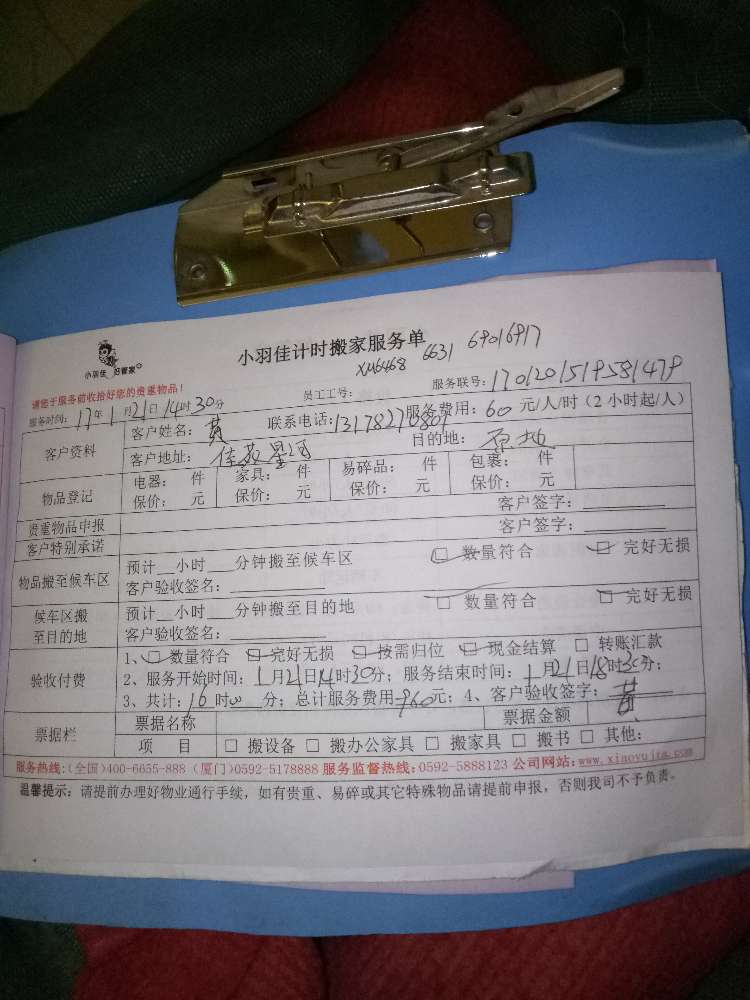 小羽佳 好管家
小羽佳计时搬家服务单
XM6468 6631 69016917
请您于服务前收拾好您的贵重物品!
员工工号: 服务联号:1701201519581479
服务时间:17年1月21日14时30分
客户资料 客户姓名:黄 联系电话:13178270801 服务费用:60元/人/时(2小时起/人)
客户地址: 目的地:原地
物品登记 电器: 件 家具: 件 易碎品: 件 包裹: 件
保价: 元 保价: 元 保价: 元 保价: 元
贵重物品申报 客户签字:
客户特别承诺 客户签字:
物品搬至候车区 预计 小时 分钟搬至候车区 □ 数量符合 □ 完好无损
客户验收签名:
候车区搬至目的地 预计 小时 分钟搬至目的地 □ 数量符合 □ 完好无损
客户验收签名:
验收付费 1、□ 数量符合 □ 完好无损 □ 按需归位 □ 现金结算 □ 转账汇款
2、服务开始时间:1月21日14时30分;服务结束时间:1月21日18时30分;
3、共计:16时 分;总计服务费用960元;4、客户验收签字:黄
票据栏 票据名称 票据金额
项 目 □ 搬设备 □ 搬办公家具 □ 搬家具 □ 搬书 □ 其他:
服务热线:(全国)400-6655-888 (厦门)0592-5178888 服务监督热线:0592-5888123 公司网站:www.xiaoyujia.com
温馨提示:请提前办理好物业通行手续,如有贵重、易碎或其它特殊物品请提前申报,否则我司不予负责。